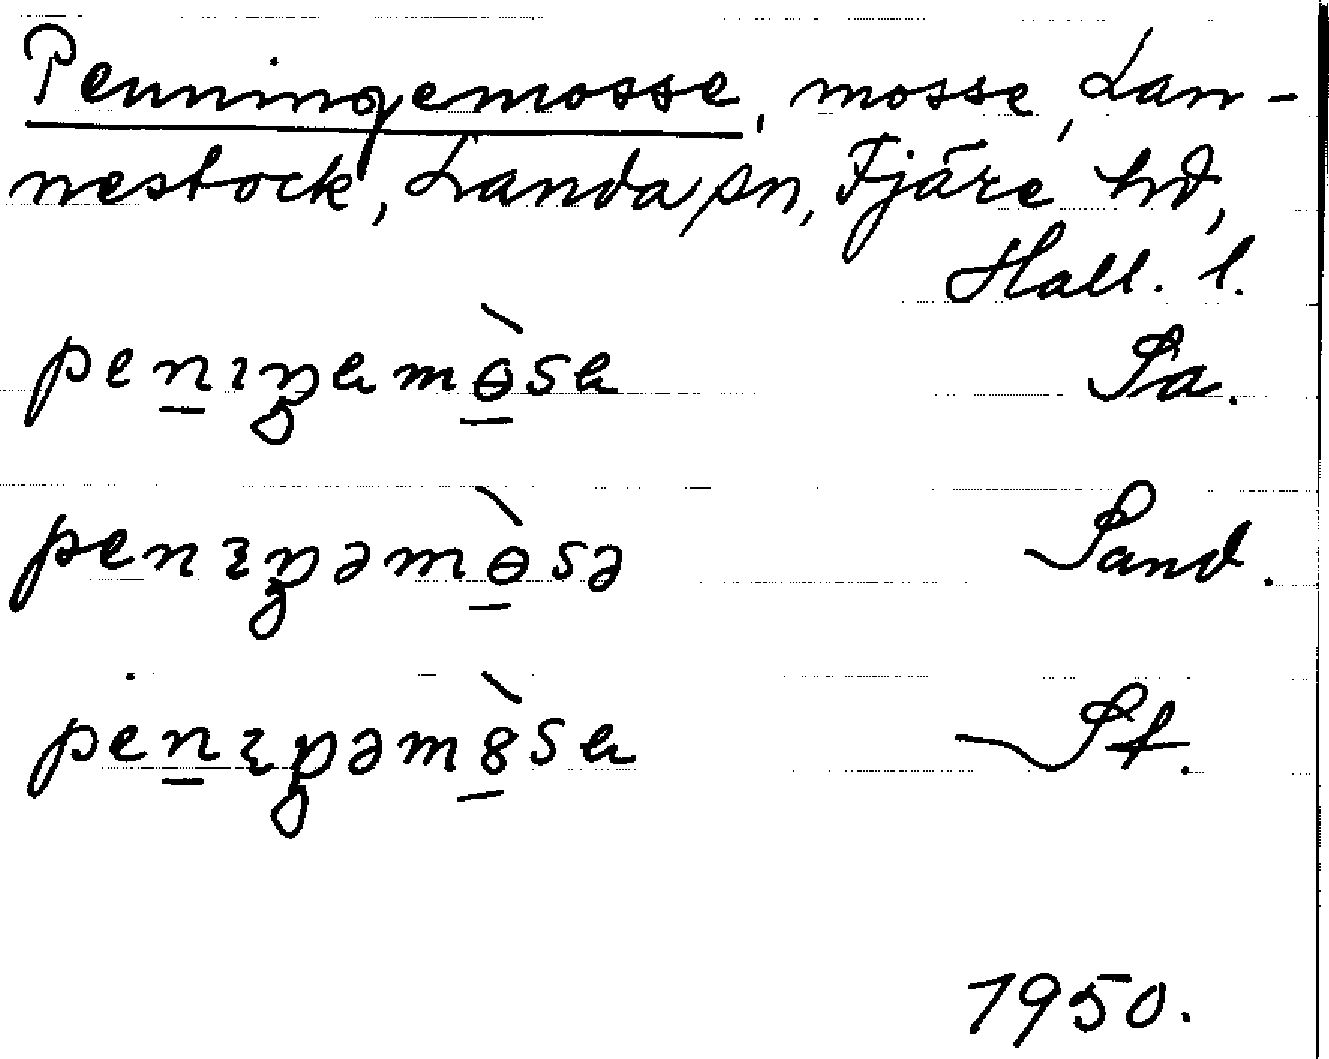 Penningemosse, mosse, Lan-
nestock, Landa sn, Fjäre hd,
Hall. l.
penıŋem&#x275;̀se Sa.
penıŋəmɵ̀sə Sand.
penıŋəm8̀se St.
1950.